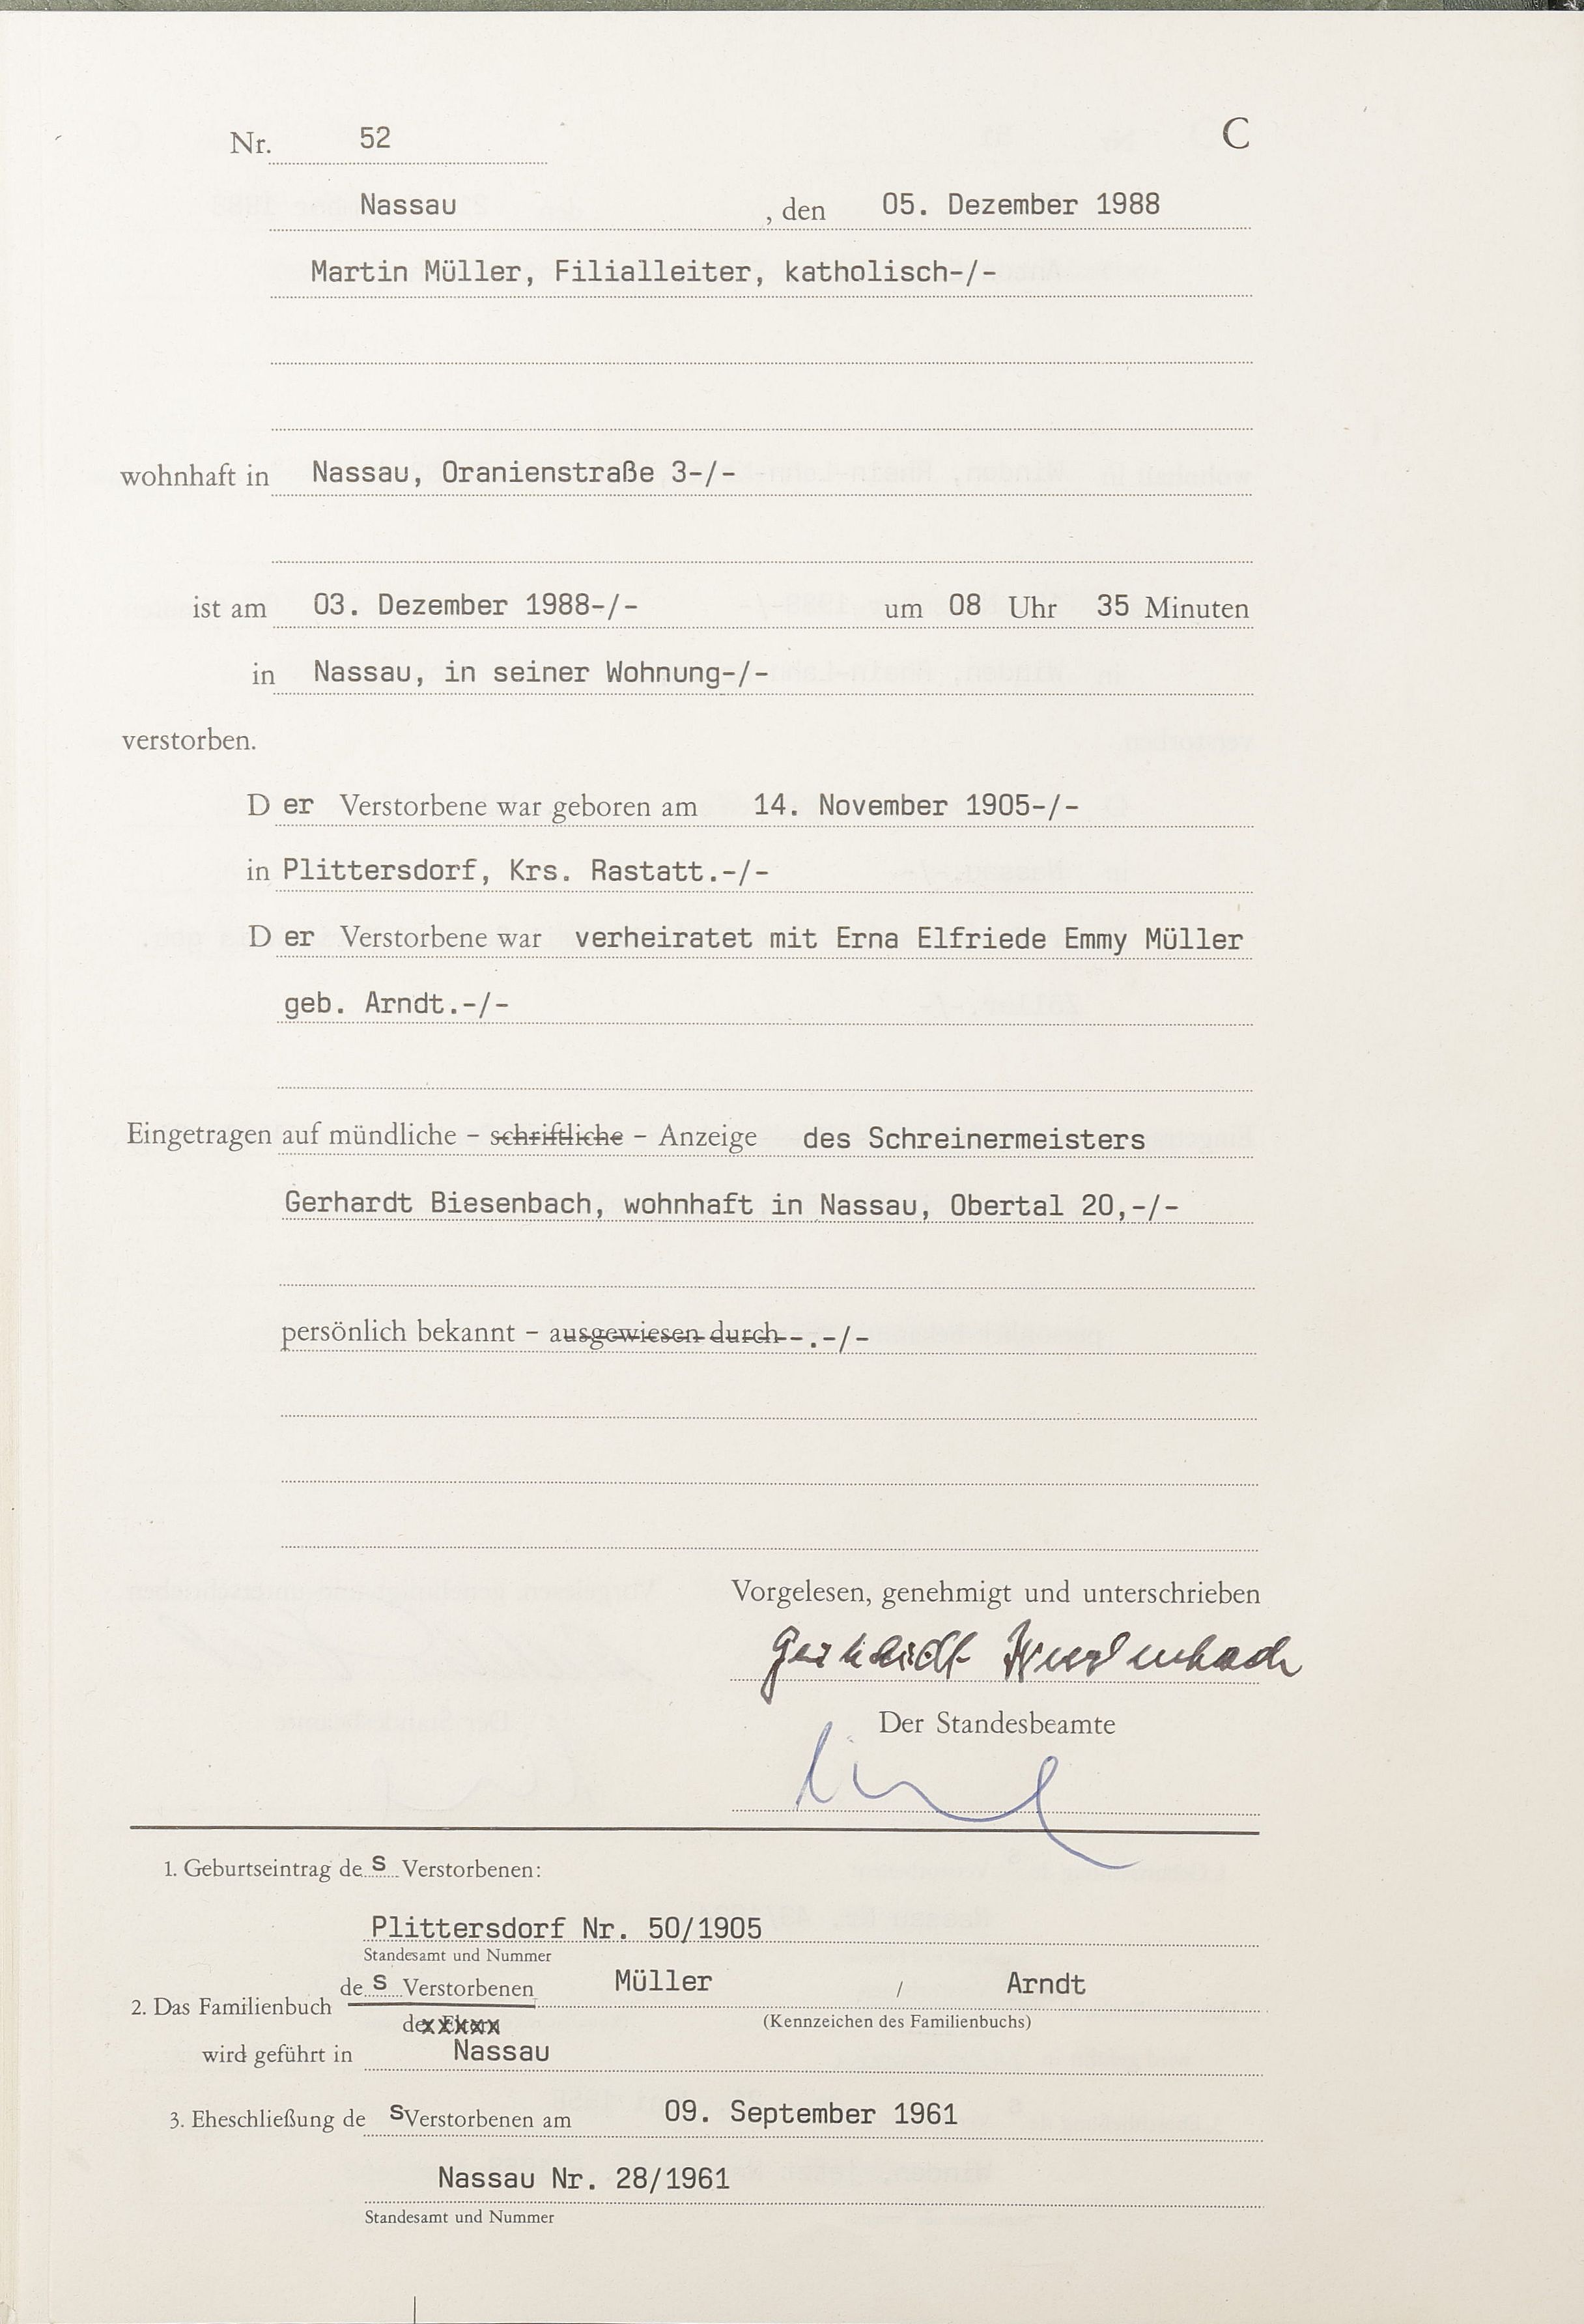 Nr. 52 C
Nassau , den 05. Dezember 1988
Martin Müller, Filialleiter, katholisch-/-
wohnhaft in Nassau, Oranienstraße 3-/-
ist am 03. Dezember 1988-/- um 08 Uhr 35 Minuten
in Nassau, in seiner Wohnung-/-
verstorben.
D er Verstorbene war geboren am 14. November 1905-/-
in Plittersdorf, Krs. Rastatt.-/-
D er Verstorbene war verheiratet mit Erna Elfriede Emmy Müller
geb. Arndt.-/-
Eingetragen auf mündliche – schriftliche – Anzeige des Schreinermeisters
Gerhardt Biesenbach, wohnhaft in Nassau, Obertal 20,-/-
persönlich bekannt – ausgewiesen durch--.-/-
Vorgelesen, genehmigt und unterschrieben
Gerhardt Biesenbach
Der Standesbeamte
1. Geburtseintrag de s Verstorbenen:
Plittersdorf Nr. 50/1905
Standesamt und Nummer
de s Verstorbenen Müller / Arndt
2. Das Familienbuch
der Eltern (Kennzeichen des Familienbuchs)
wird geführt in Nassau
3. Eheschließung de s Verstorbenen am 09. September 1961
Nassau Nr. 28/1961
Standesamt und Nummer